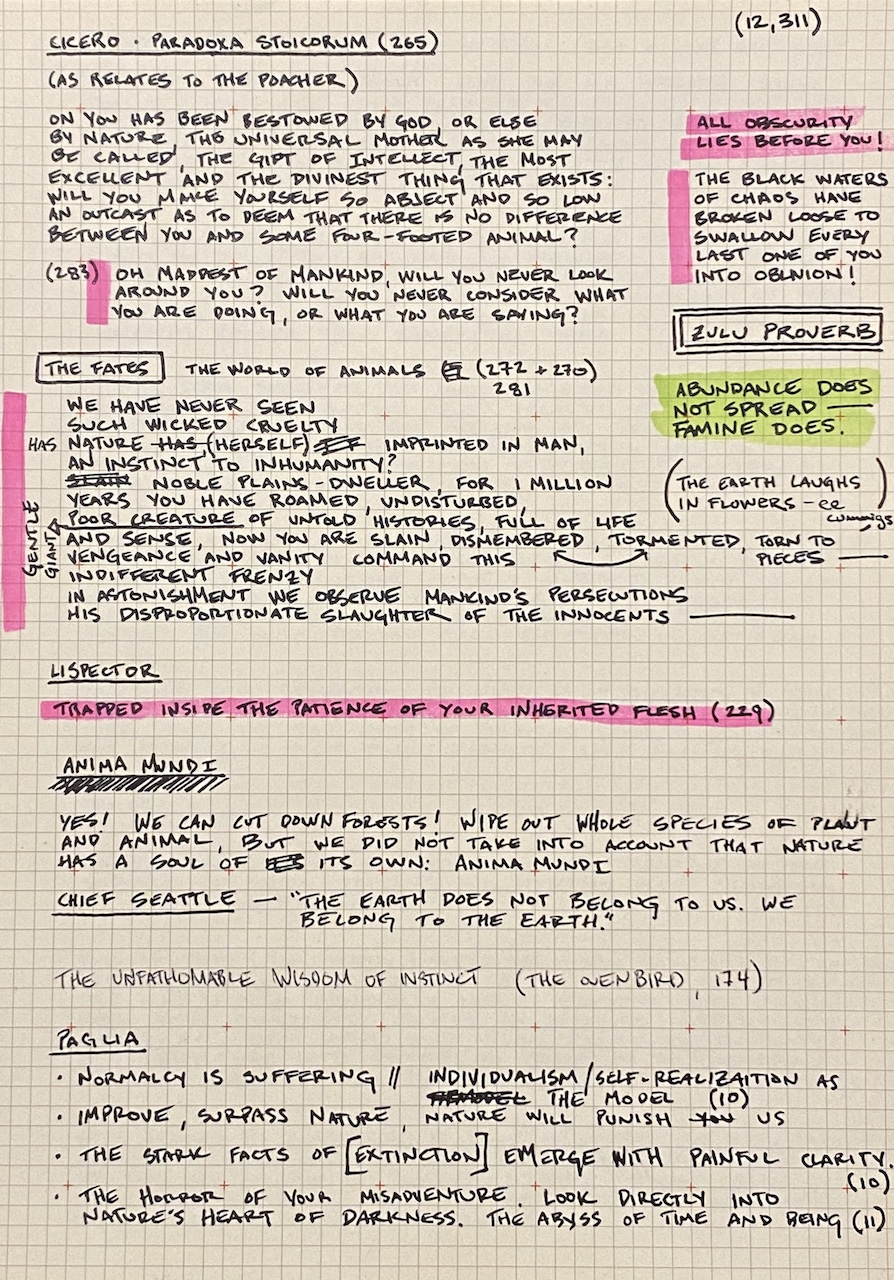 (12,311)
CICERO · PARADOXA STOICORUM (265)
(AS RELATES TO THE POACHER)
ON YOU HAS BEEN BESTOWED BY GOD, OR ELSE
BY NATURE, THE UNIVERSAL MOTHER AS SHE MAY
BE CALLED, THE GIFT OF INTELLECT, THE MOST
EXCELLENT AND THE DIVINEST THING THAT EXISTS:
WILL YOU MAKE YOURSELF SO ABJECT AND SO LOW
AN OUTCAST AS TO DEEM THAT THERE IS NO DIFFERENCE
BETWEEN YOU AND SOME FOUR-FOOTED ANIMAL?
(283) OH MADDEST OF MANKIND, WILL YOU NEVER LOOK
AROUND YOU? WILL YOU NEVER CONSIDER WHAT
YOU ARE DOING, OR WHAT YOU ARE SAYING?
ALL OBSCURITY
LIES BEFORE YOU!
THE BLACK WATERS
OF CHAOS HAVE
BROKEN LOOSE TO
SWALLOW EVERY
LAST ONE OF YOU
INTO OBLIVION!
ZULU PROVERB
ABUNDANCE DOES
NOT SPREAD —
FAMINE DOES.
(THE EARTH LAUGHS
IN FLOWERS - ee
cummings)
THE FATES THE WORLD OF ANIMALS (272 + 270)
281
WE HAVE NEVER SEEN
SUCH WICKED CRUELTY
HAS NATURE HAS (HERSELF) IMPRINTED IN MAN,
AN INSTINCT TO INHUMANITY?
NOBLE PLAINS-DWELLER, FOR 1 MILLION
YEARS YOU HAVE ROAMED, UNDISTURBED,
GENTLE GIANT
POOR CREATURE OF UNTOLD HISTORIES, FULL OF LIFE
AND SENSE, NOW YOU ARE SLAIN, DISMEMBERED, TORMENTED, TORN TO
PIECES —
VENGEANCE AND VANITY COMMAND THIS
INDIFFERENT FRENZY
IN ASTONISHMENT WE OBSERVE MANKIND'S PERSECUTIONS
HIS DISPROPORTIONATE SLAUGHTER OF THE INNOCENTS —
LISPECTOR
TRAPPED INSIDE THE PATIENCE OF YOUR INHERITED FLESH (229)
ANIMA MUNDI
YES! WE CAN CUT DOWN FORESTS! WIPE OUT WHOLE SPECIES OF PLANT
AND ANIMAL, BUT WE DID NOT TAKE INTO ACCOUNT THAT NATURE
HAS A SOUL OF ITS OWN: ANIMA MUNDI
CHIEF SEATTLE — "THE EARTH DOES NOT BELONG TO US. WE
BELONG TO THE EARTH."
THE UNFATHOMABLE WISDOM OF INSTINCT (THE OVENBIRD, 174)
PAGLIA
· NORMALCY IS SUFFERING // INDIVIDUALISM/SELF-REALIZAITION AS
THE MODEL (10)
· IMPROVE, SURPASS NATURE, NATURE WILL PUNISH YOU US
· THE STARK FACTS OF [EXTINCTION] EMERGE WITH PAINFUL CLARITY.
(10)
· THE HORROR OF YOUR MISADVENTURE. LOOK DIRECTLY INTO
NATURE'S HEART OF DARKNESS. THE ABYSS OF TIME AND BEING (11)